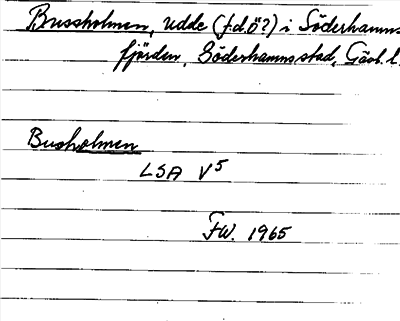 Bussholmen, udde (f.d.ö?) i Söderhamns
fjärden, Söderhamns stad, Gäst.l.
Busholmen
LSA V5
FW. 1965